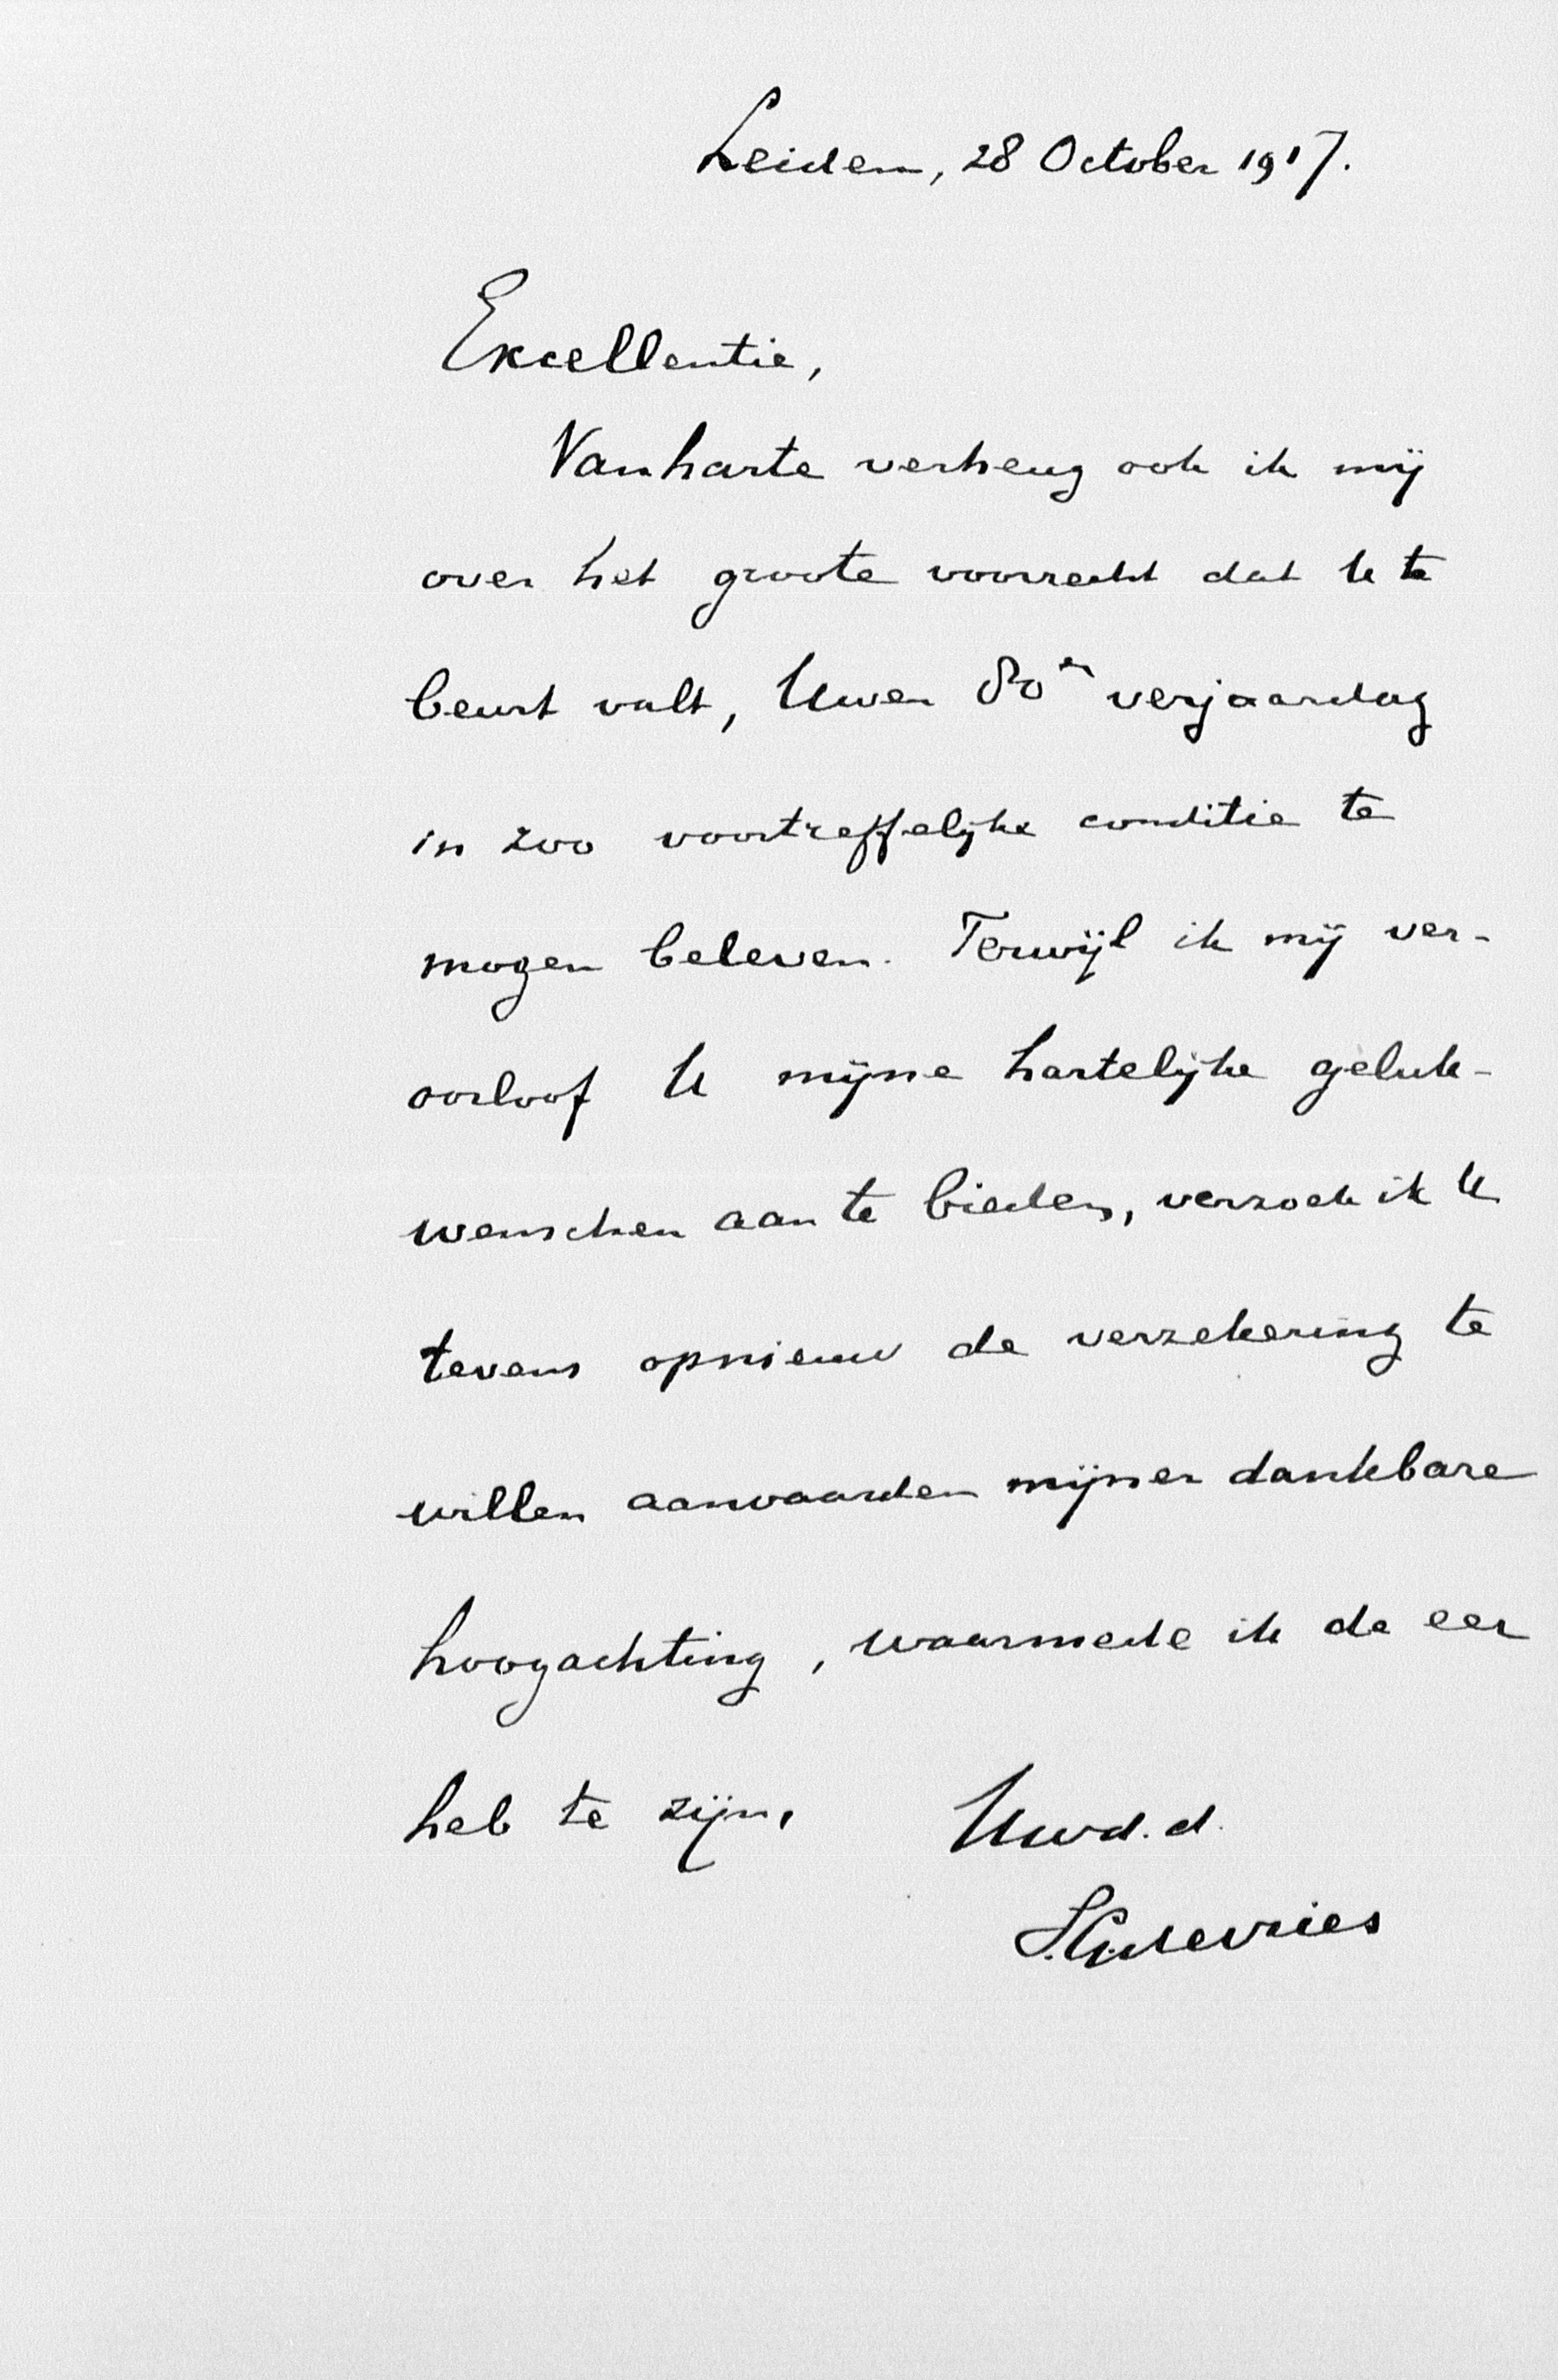 Leiden, 28 October 1917.
Excellentie,
Van harte verheug ook ik mij
over het groote voorrecht dat U te
beurt valt, Uwen 80en verjaardag
in zoo voortreffelijke conditie te
mogen beleven. Terwijl ik mij ver-
oorloof U mijne hartelijke geluk-
wenschen aan te bieden, verzoek ik U
tevens opnieuw de verzekering te
willen aanvaarden mijner dankbare
hoogachting, waarmede ik de eer
heb te zijn,
Uwd. d.
devries